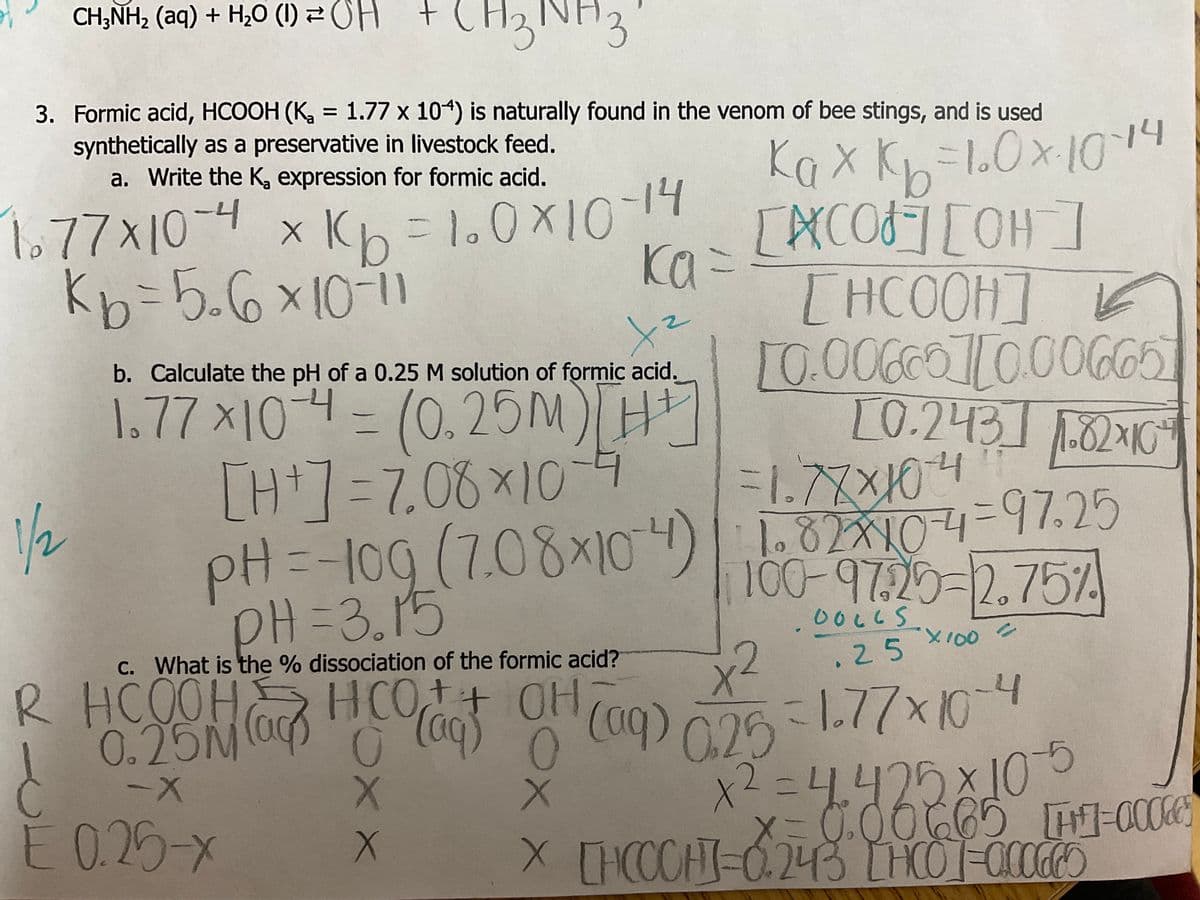 CH₃NH₂ (aq) + H₂O (l) ⇄ OH + CH₃NH₃
3. Formic acid, HCOOH (Kₐ = 1.77 x 10⁻⁴) is naturally found in the venom of bee stings, and is used
synthetically as a preservative in livestock feed.
a. Write the Kₐ expression for formic acid.
Ka x Kb = 1.0 x 10⁻¹⁴
1.77 x 10⁻⁴ x Kb = 1.0 x 10⁻¹⁴
Kb = 5.6 x 10⁻¹¹
Ka = [HCO⁺] [OH⁻]
[HCOOH]
x²
b. Calculate the pH of a 0.25 M solution of formic acid.
1.77 x 10⁻⁴ = (0.25M) [H⁺]
[H⁺] = 7.08 x 10⁻⁴
pH = -log (7.08 x 10⁻⁴)
pH = 3.15
1/2
[0.00665] [0.00665]
[0.243] 1.82 x 10⁻⁴
= 1.77 x 10⁻⁴
1.82 x 10⁻⁴ = 97.25
100 - 97.25 = 2.75%
.00665
.25 x 100 =
c. What is the % dissociation of the formic acid?
R HCOOH (aq) ⇆ HCO⁺ (aq) + OH⁻ (aq)
I 0.25M 0 0
C -x x x
E 0.25-x x x
x²
0.25 = 1.77 x 10⁻⁴
x² = 4.425 x 10⁻⁵
x = 0.00665 [H⁺] = 0.00665
[HCOOH] = 0.243 [HCO ] = 0.00665